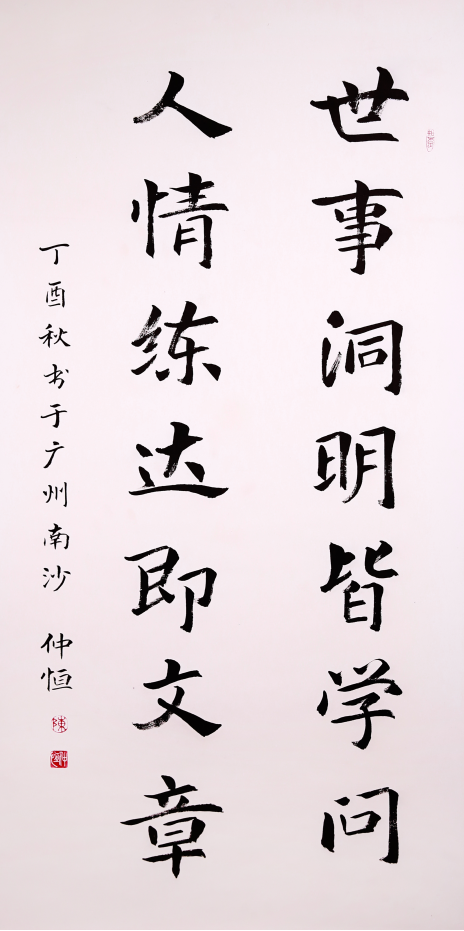 世事洞明皆学问
人情练达即文章
丁酉秋书于广州南沙 仲恒
陳